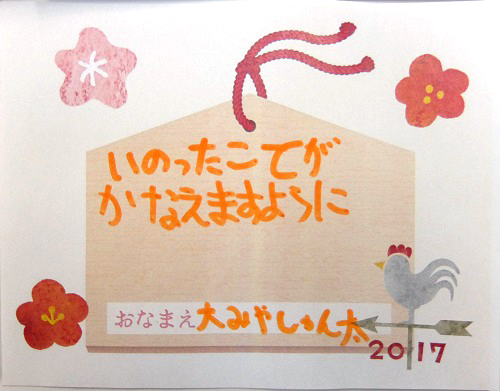 いのったことが
かなえますように
おなまえ 大みやしゅん太
2017